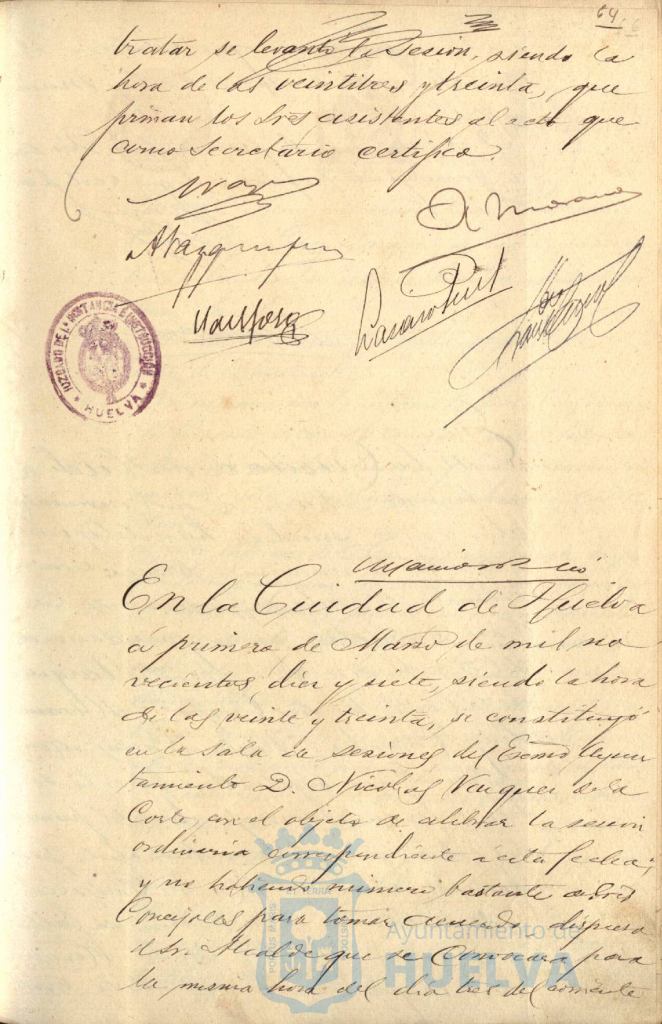 64
tratar se levantó la sesion, siendo la
hora de las veintitres y treinta, que
firman los Sres asistentes al acto que
como Secretario certifico.
A. Moreno
JUZGADO DE 1ª INSTANCIA E INSTRUCCION
* HUELVA *
En la Ciudad de Huelva
á primero de Marzo de mil no
vecientos diez y siete, siendo la hora
de las veinte y treinta, se constituyó
en la Sala de sesiones del Excmo Ayun
tamiento D. Nicolas Vazquez de la
Corte, con el objeto de celebrar la sesion
ordinaria correspondiente á esta fecha;
y no habiendo número bastante de Sres
Concejales para tomar acuerdo, dispuso
el Sr. Alcalde que se convocara para
la misma hora del dia tres del corriente
Ayuntamiento de
HUELVA